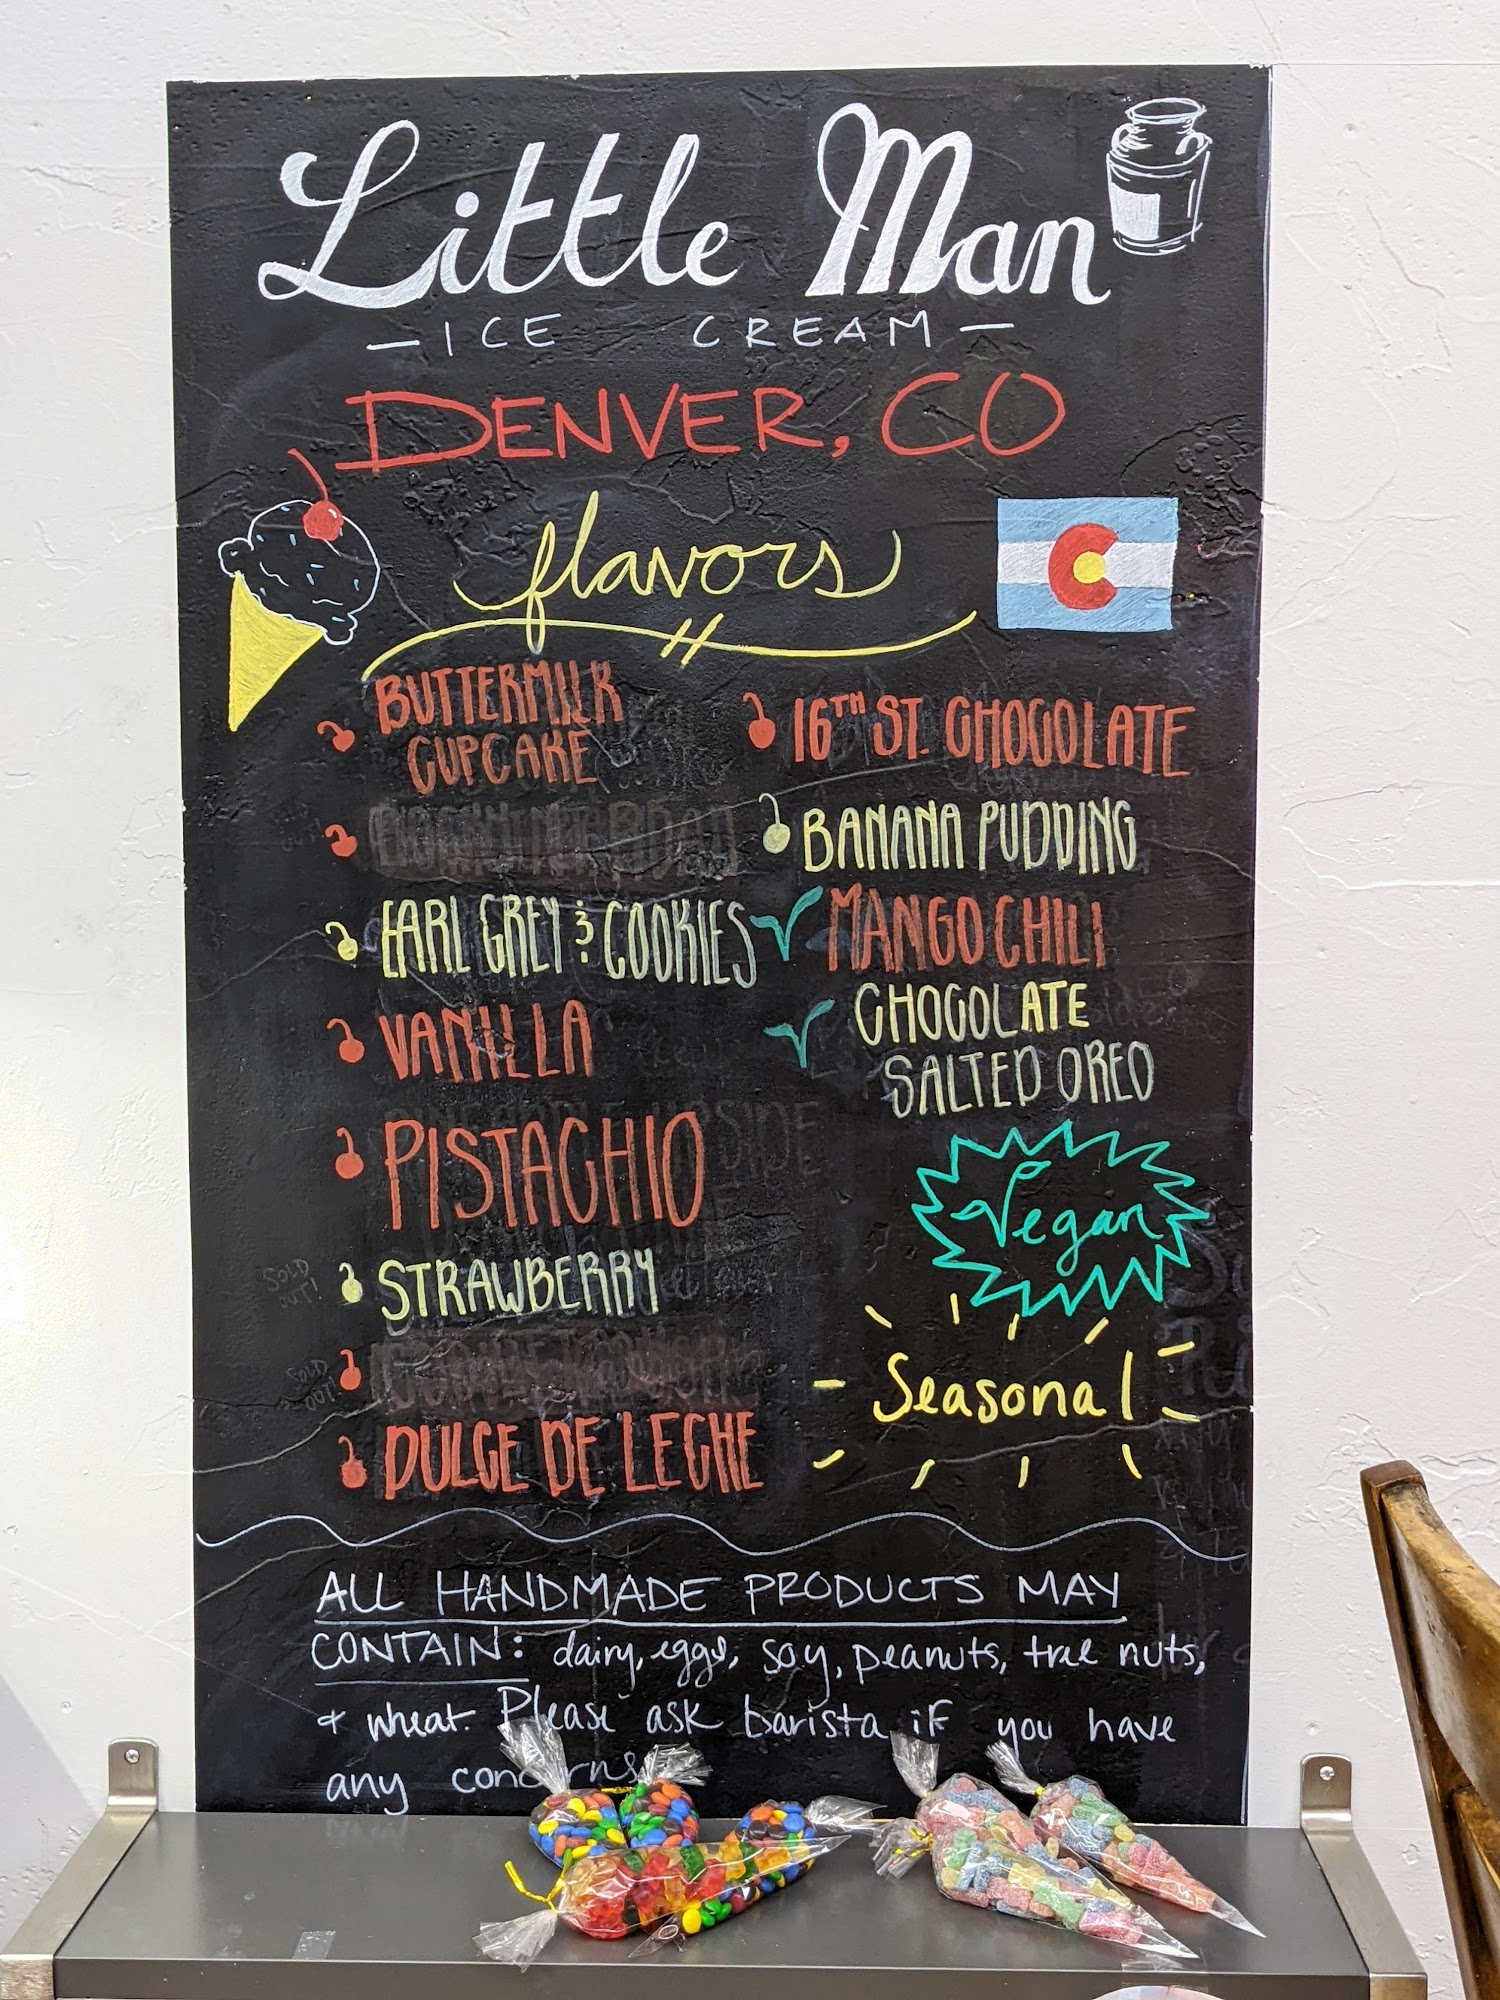 Little Man
— ICE CREAM —
DENVER, CO
flavors
BUTTERMILK
CUPCAKE
EARL GREY & COOKIES
VANILLA
PISTACHIO
STRAWBERRY
DULCE DE LECHE
16TH ST. CHOCOLATE
BANANA PUDDING
MANGO CHILI
CHOCOLATE
SALTED OREO
Vegan
Seasonal
SOLD
OUT!
SOLD
ALL HANDMADE PRODUCTS MAY
CONTAIN: dairy, eggs, soy, peanuts, tree nuts,
& wheat. Please ask barista if you have
any concerns